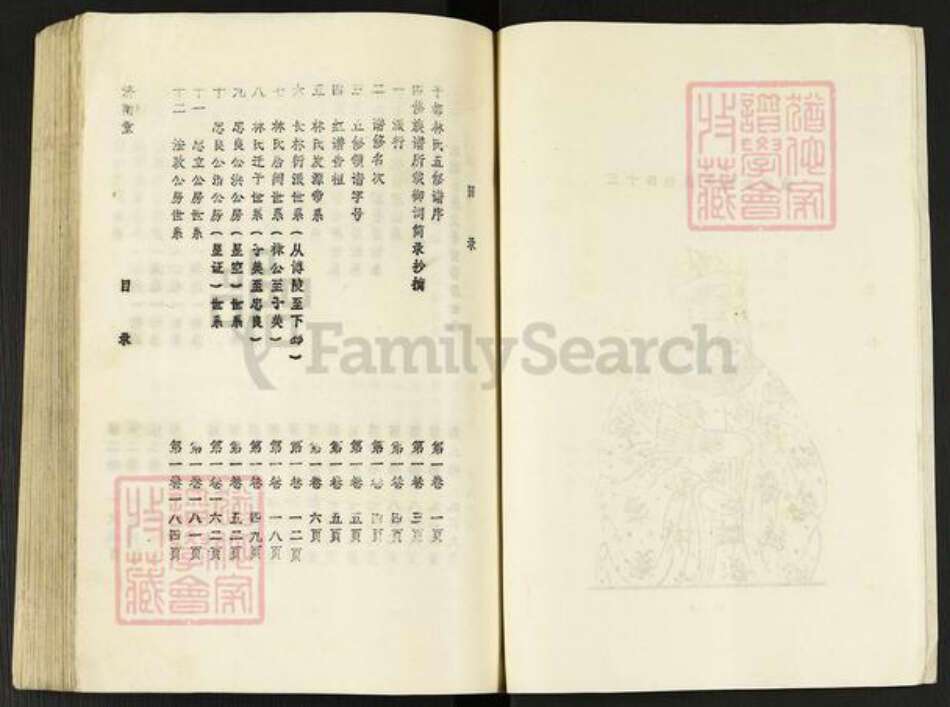 目录
于都林氏五修谱序 第一卷 一页
四修族谱所载柳词简录抄摘 第一卷 三页
一 派行 第一卷 四页
二 谱修名次 第一卷 四页
三 五修领谱字号 第一卷 五页
四 红谱告祖 第一卷 五页
五 林氏发源带系 第一卷 六页
六 长林衍派世系(从博陵至下邳) 第一卷 一二页
七 林氏居闽世系(禄公至子英) 第一卷 一八页
八 林氏迁于世系(子英至思良) 第一卷 四九页
九 思良公洪公房(星聚)世系 第一卷 五二页
十 思良公浩公房(星证)世系 第一卷 一六二页
十一 思立公房世系 第一卷 一八一页
十二 法敦公房世系 第一卷 一八四页
济南堂 目录
FamilySearch
譜學會
收藏
譜學會
收藏